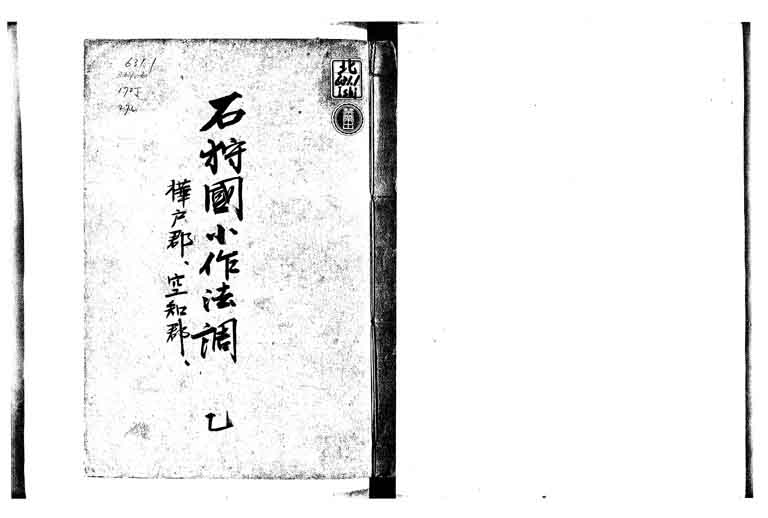 石狩國小作法調 乙
樺戸郡、空知郡、
北
631.1
Ishi
631.1